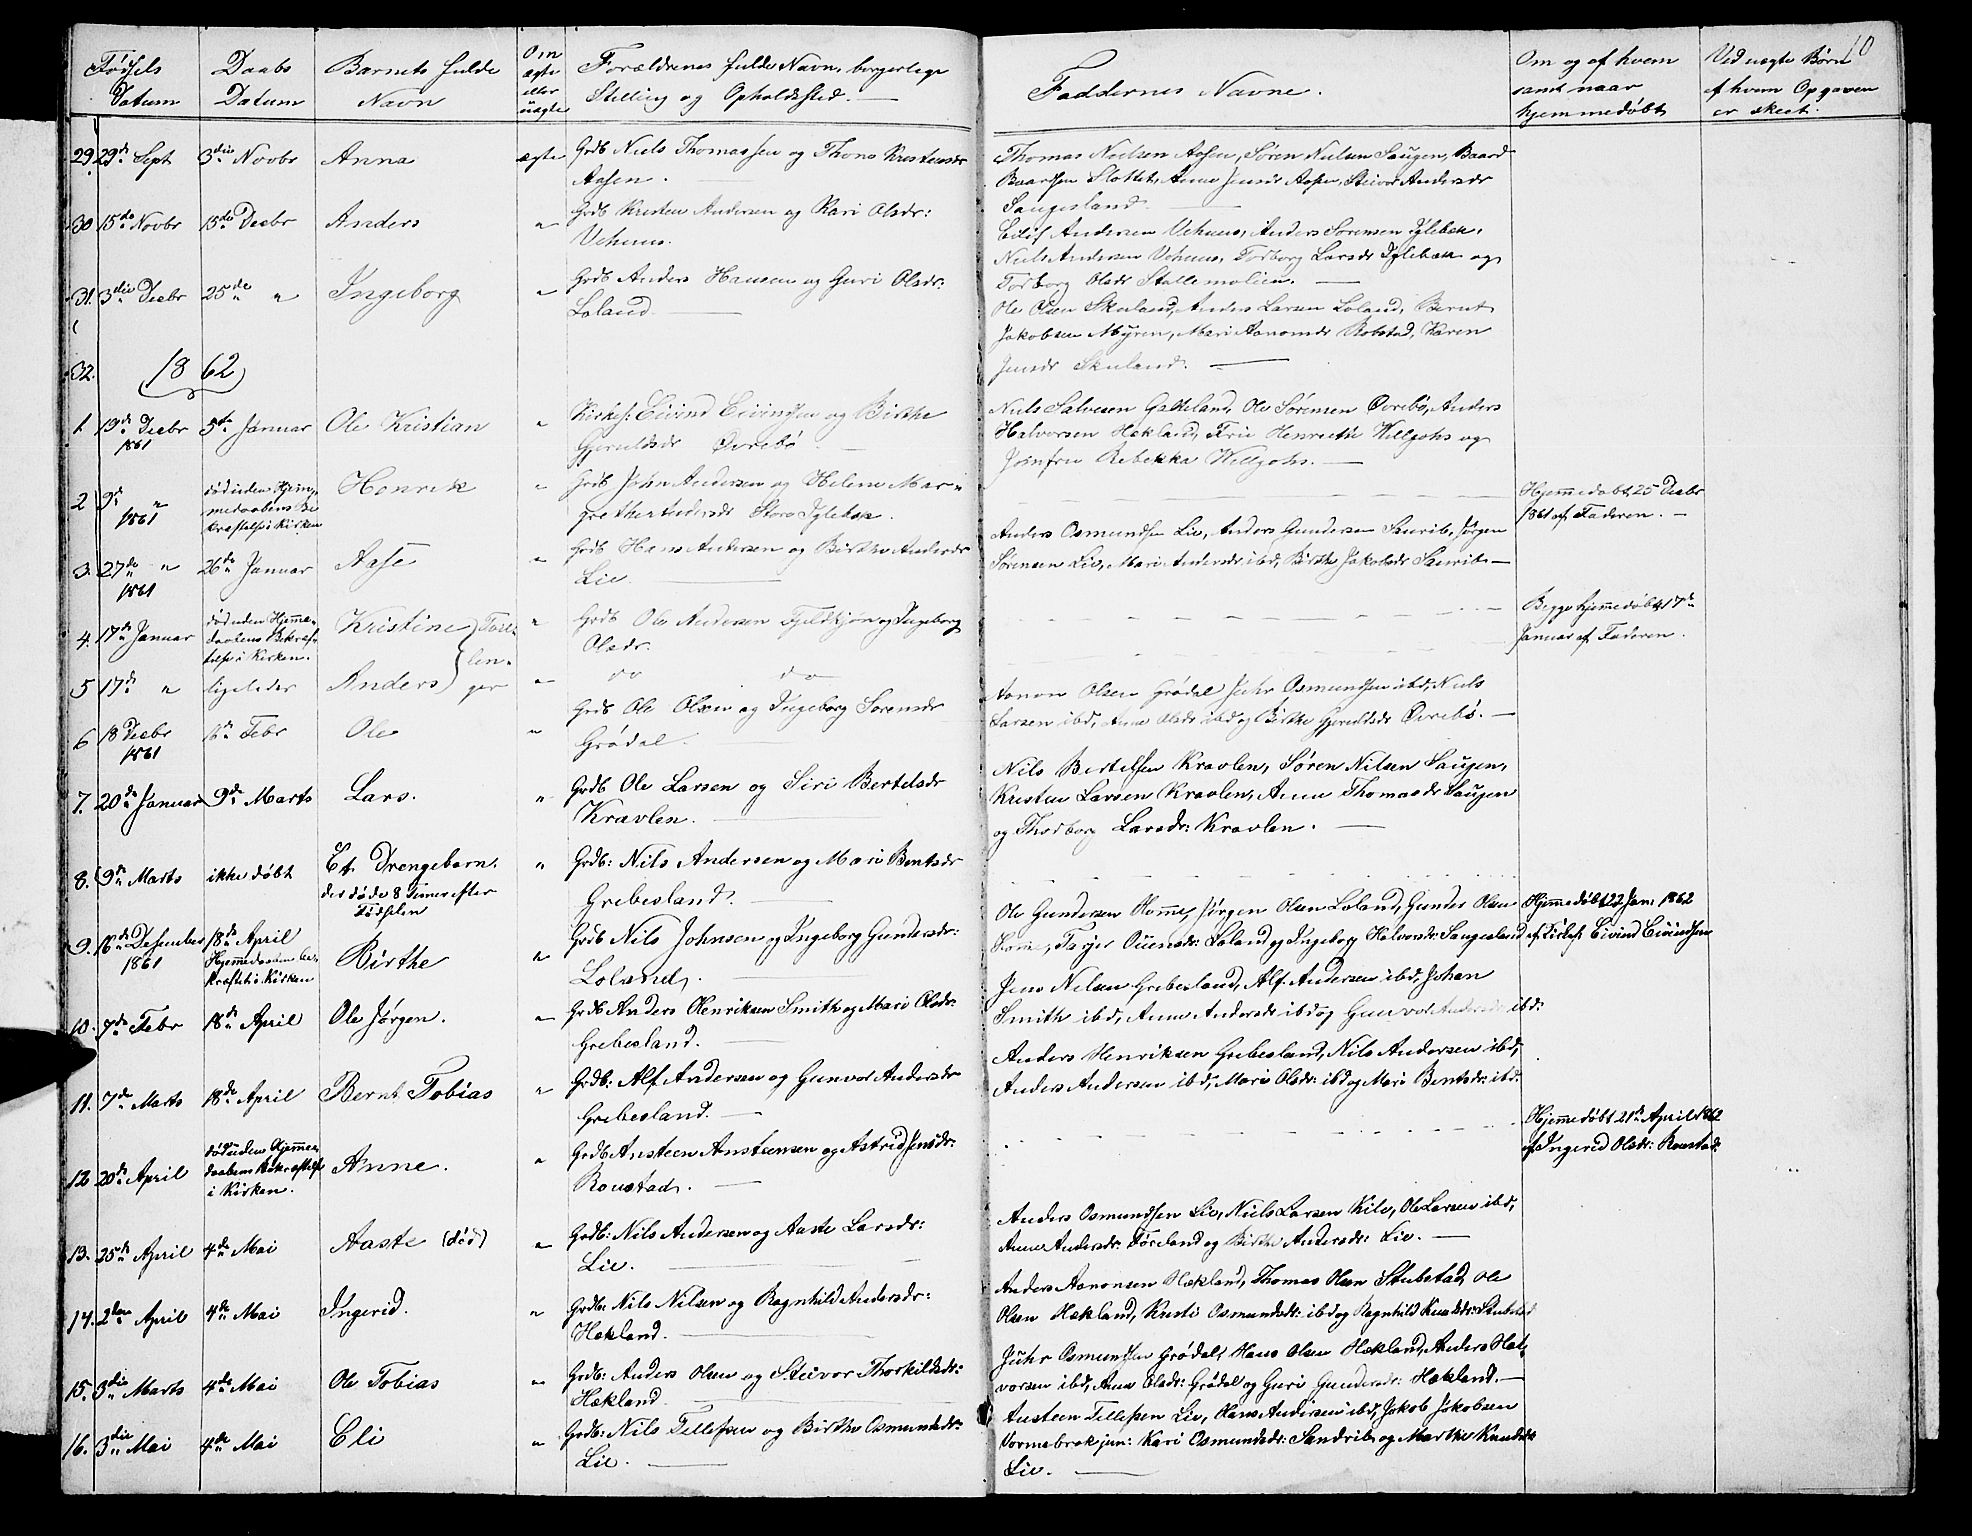 10
Fødsels Datum
Daabs Datum
Barnets fulde Navn
Om ægte eller uægte
Forældrenes fulde Navn, borgerlige Stilling og Opholdssted. —
Faddernes Navne.
Om og af hvem samt naar hjemmedøbt
Ved uægte Børn af hvem Opgaven er skeet.
29. 29de Sept 3die Novbr Anna ægte Grdb Niels Thomassen og Thone Kristensdr
Aasen.
Thomas Nielsen Aasen, Søren Nielsen Saugen, Baard
Baardsen Slottet, Anne Jensdr Aasen, Steivor Andersdr
Saugesland.
30 15de Novbr 15de Decbr Anders " Grdb Kristen Andersen og Kari Olsdr:
Vehuus.
Andersen Vehuus, Anders Sørensen Iglebæk,
Niels Andersen Vehuus, Torborg Larsdr Iglebæk og
Torborg Olsdr Stallemolien. —
31. 3die Decbr 25de " Ingeborg " Grdb Anders Hansen og Guri Olsdr:
Loland —
Ole Olsen Skuland, Anders Larsen Loland, Bernt
Jakobsen Myren, Mari Aanonsdr Robstad, Karen
Jensdr Skuland. —
32.
1862
1 19de Decbr 1861 5te Januar Ole Kristian " Kirkes: Eivind Eivindsen og Birthe
Gjeruldsdr Øvrebø —
Niels Salvesen Gatteland, Ole Sørensen Øvrebø, Anders
Halvorsen Hækland, Frue Henriette Willgohs og
Jomfru Rebekka Willgohs. —
2 9de " 1861 død uden Hjemmedaabens Bekræftelse i Kirken Henrik " Grdb John Andersen og Helene Mar-
grethe Andersdr Store Iglebæk.
Hjemmedøbt 25 Decbr
1861 af Faderen. —
3. 27de " 1861 26de Januar Aase " Grdb Hans Andersen og Birthe Andersdr
Lie —
Anders Osmundsen Lie, Anders Gundersen Sanrib, Jørgen
Sørensen Lie, Mari Andersdr ibd, Birthe Jakobsdr Sanrib —
4. 17de Januar død uden Hjemmedaabens Bekræftelse i Kirken. Kristine } Tvillinger " Grdb Ole Andersen Fjeldkjøn og Ingeborg
Olsdr.
Begge hjemmedøbt 17de
Januar af Faderen.
5 17de " ligeledes Anders " do do
6 18 Decbr 1861 16de Febr Ole " Grdb Ole Olsen og Ingeborg Sørensdr
Grødal. —
Aanon Olsen Grødal Juhr Osmundsen ibd, Niels
Larsen ibd, Anne Olsdr ibd og Birthe Gjeruldsdr Øvrebø. —
7. 20de Januar 9de Marts Lars. " Grdb Ole Larsen og Siri Bertelsdr
Kravlen. —
Nils Bertelsen Kravlen, Søren Nilsen Saugen,
Kristen Larsen Kravlen, Anne Thomasdr Saugen
og Thorborg Larsdr: Kravlen. —
8. 9de Marts ikke døbt Et Drengebarn. " Grdb: Nils Andersen og Mari Bentsdr
der døde 8 Timer efter Fødselen
Grebesland. —
9. 16de Desember 1861 18de April Hjemmedaaben bekræftet i Kirken Birthe " Grdb Nils Johnsen og Ingeborg Gundersdr:
Loland. —
Ole Gundersen Homme, Jørgen Olsen Loland, Gunder Olsen
Homme, Tarjer Ouensdr: Loland og Ingeborg Halvorsdr: Saugesland
Hjemmedøbt 22 Jan: 1862
af Kirkes: Eivind Eivindsen
10. 7de Febr 18de April Ole Jørgen. " Grdb Anders Henriksen Smith og Mari Olsdr:
Grebesland. —
Jens Nielsen Grebesland, Alf Andersen ibd, Johan
Smith ibd, Anne Andersdr ibd og Gunvor Andersdr ibd:
11. 7de Marts 18de April Bernt Tobias " Grdb: Alf Andersen og Gunvor Andersdr
Grebesland. —
Anders Henriksen Grebesland, Nils Andersen ibd,
Anders Andersen ibd, Mari Olsdr: ibd og Mari Bentsdr: ibd:
12. 20de April død uden Hjemmedaabens Bekræftelse i Kirken. Anne. " Grdb Ansteen Ansteensen og Astrid Jensdr:
Roustad. —
Hjemmedøbt 21de April 1862
af Ingerid Olsdr: Roustad.
13. 25de April 4de Mai Aaste (død) " Grdb: Nils Andersen og Aaste Larsdr:
Lie. —
Anders Osmundsen Lie, Niels Larsen Kile, Ole Larsen ibd,
Anne Andersdr: Føreland og Birthe Andersdr: Lie. —
14. 2den April 4de Mai Ingerid. " Grdb: Nils Nilsen og Ragnhild Andersdr:
Hækland. —
Anders Aanonsen Hækland, Thomas Olsen Stubstad, Ole
Olsen Hækland, Kristi Osmundsdr: ibd og Ragnhild Knudsdr: Stubstad
15. 3die Marts 4de Mai Ole Tobias " Grdb: Anders Olsen og Steivor Thorkildsdr:
Hækland —
Juhr Osmundsen Grødal, Hans Olsen Hækland, Anders Hal-
vorsen ibd, Anne Olsdr: Grødal og Guri Gundersdr: Hækland. —
16. 3die Mai 4de Mai Eli " Grdb: Nils Tellefsen og Birthe Osmundsdr:
Lie. —
Austeen Tellefsen Lie, Hans Andersen ibd, Jakob Jakobsen
Vormebrok jun: Kari Osmundsdr: Sandrib og Marthe Knudsdr
Lie. —